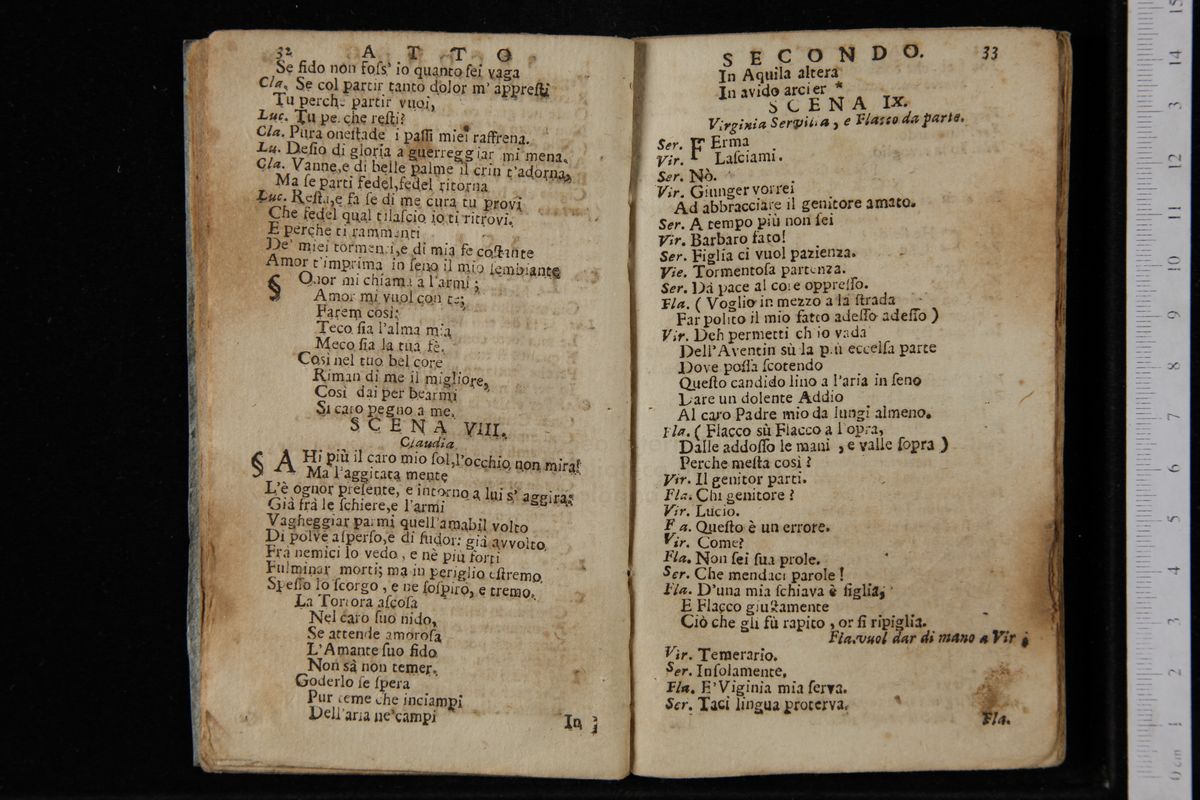 32 A T T O
Se fido non foſs' io quanto ſei vaga
Cla. Se col partir tanto dolor m' appreſti
Tu perche partir vuoi,
Luc. Tu perche reſti?
Cla. Pura oneſtade i paſſi miei raffrena.
Lu. Deſio di gloria a guerreggiar mi mena.
Cla. Vanne,e di belle palme il crin t'adorna,
Ma ſe parti fedel,fedel ritorna
Luc. Reſta,e fa ſe di me cura tu provi
Che fedel qual tilaſcio io ti ritrovi.
E perche ti rammenti
De' miei tormenti,e di mia fe coſtante
Amor t'imprima in ſeno il mio ſembiante
§ Onor mi chiama a l'armi ;
Amor mi vuol con te;
Farem cosi:
Teco ſia l'alma mia
Meco ſia la tua fè.
Cosi nel tuo bel core
Riman di me il migliore,
Cosi dai per bearmi
Si caro pegno a me.
S C E N A VIII.
Claudia
§ AHi più il caro mio ſol,l'occhio non mira!
Ma l'aggitata mente
L'è ognor preſente, e intorno a lui s' aggira;
Già frà le ſchiere,e l'armi
Vagheggiar parmi quell'amabil volto
Di polve aſperſo,e di ſudor: già avvolto
Frà nemici lo vedo , e nè più forti
Fulminar morti; ma in periglio eſtremo
Speſſo lo ſcorgo , e ne ſoſpiro, e tremo.
La Tortora aſcoſa
Nel caro ſuo nido,
Se attende amoroſa
L'Amante ſuo fido
Non sà non temer.
Goderlo ſe ſpera
Pur teme che inciampi
Dell'aria ne'campi
In
S E C O N D O. 33
In Aquila altera
In avido arcier *
S C E N A IX.
Virginia Servilia , e Flacco da parte.
Ser. FErma
Vir. Laſciami.
Ser. Nò.
Vir. Giunger vorrei
Ad abbracciare il genitore amato.
Ser. A tempo più non ſei
Vir. Barbaro fato!
Ser. Figlia ci vuol pazienza.
Vie. Tormentoſa partenza.
Ser. Dà pace al core oppreſſo.
Fla. ( Voglio in mezzo a la ſtrada
Far polito il mio fatto adeſſo adeſſo )
Vir. Deh permetti ch io vada
Dell'Aventin sù la più eccelſa parte
Dove poſſa ſcotendo
Queſto candido lino a l'aria in ſeno
Dare un dolente Addio
Al caro Padre mio da lungi almeno.
Fla. ( Flacco sù Flacco a l opra,
Dalle addoſſo le mani , e valle ſopra )
Perche meſta così ?
Vir. Il genitor parti.
Fla. Chi genitore ?
Vir. Lucio.
F a. Queſto è un errore.
Vir. Come?
Fla. Non ſei ſua prole.
Ser. Che mendaci parole !
Fla. D'una mia ſchiava è figlia,
E Flacco giuſtamente
Ciò che gli fù rapito , or ſi ripiglia.
Fla.vuol dar di mano a Vir ;
Vir. Temerario.
Ser. Inſolamente.
Fla. E'Viginia mia ſerva.
Ser. Taci lingua proterva.
Fla.